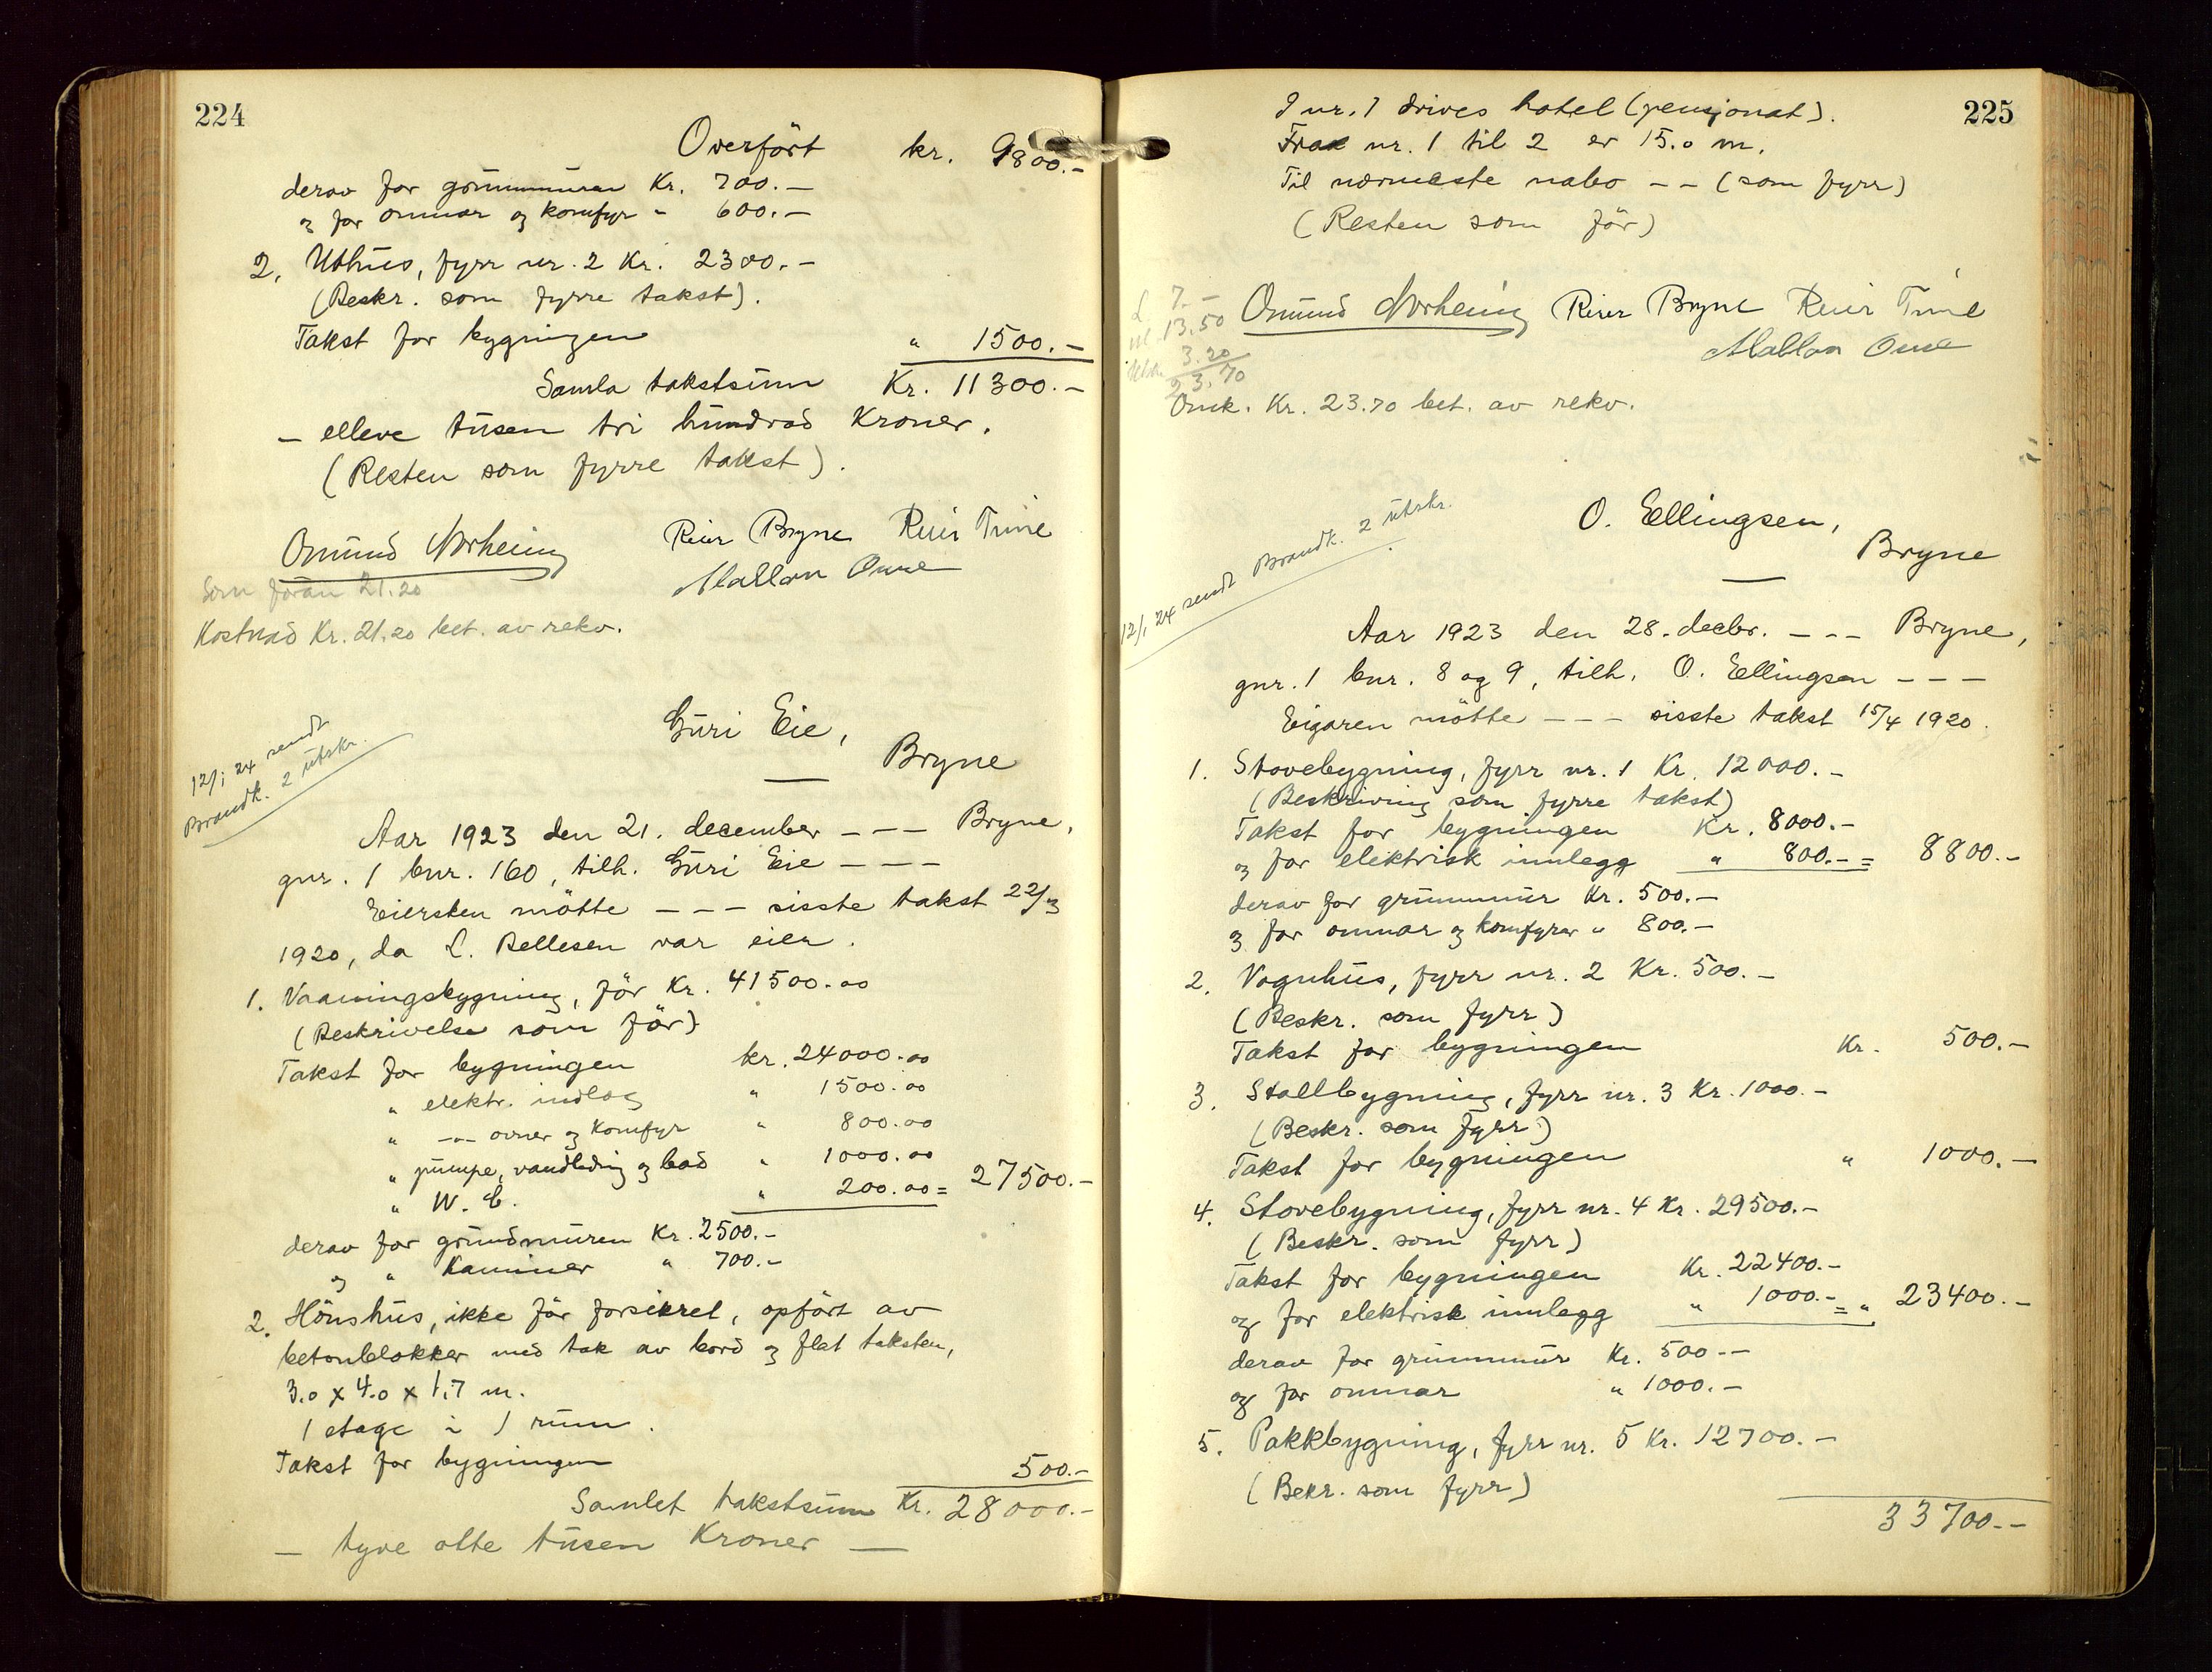 224
Overfört kr. 9800.-
derav for grunnmuren Kr. 700.-
og for omnar og komfyr " 600.-
2. Uthus, fyrr nr. 2 Kr. 2300.-
(Beskr. som fyrre takst).
Takst for bygningen " 1500.-
Samla takstsum Kr. 11300.-
- elleve tusen tri hundrad Kroner.
(Resten som fyrre takst).
Omund Norheim Reier Bryne Reier Tune
Mallan Oune
Som foran 21.20
Kostnad Kr. 21.20 bet. av rekv.
Guri Eie,
Bryne
12/1 24 sendt
Brandk. 2 utskr.
Aar 1923 den 21. december - - - Bryne,
gnr. 1 bnr. 160, tilh. Guri Eie - - -
Eiersken mötte - - - sisste takst 22/3
1920, da L. Bellesen var eier.
1. Vaaningsbygning, för Kr. 41500.00
(Beskrivelse som för)
Takst for bygningen kr. 24000.00
" elektr. indlag " 1500.00
" -"- ovner og Komfyr " 800.00
" pumpe, vandledning og bad " 1000.00
" W.C. " 200.00 = 27500.-
derav for grundmuren Kr. 2500.-
og " Kaminer " 700.-
2. Hönshus, ikke för forsikret, opfört av
betonblokker med tak av bord og flat taksten,
3.0 x 4.0 x 1.7 m.
1 etage i 1 rum.
Takst for bygningen 500.-
Samlet takstsum Kr. 28000.-
- tyve otte tusen Kroner -
225
I nr. 1 drives hotel (pensjonat).
Fraa nr. 1 til 2 er 15.0 m.
Til nærmeste nabo - - (som fyrr)
(Resten som för)
7.-
13.50
3.20
23.70
Omund Norheim Reier Bryne Reier Tune
Mallan Oune
Omk. Kr. 23.70 bet. av rekv.
12/1 24 sendt Brandk. 2 utskr.
O. Ellingsen,
Bryne
Aar 1923 den 28. decbr. - - - Bryne,
gnr. 1 bnr. 8 og 9, tilh. O. Ellingsen - - -
Eigaren mötte - - - sisste takst 15/4 1920.
1. Stovebygning, fyrr nr. 1 Kr. 12000.-
(Beskrivning som fyrre takst)
Takst for bygningen Kr. 8000.-
og for elektrisk innlegg " 800.- = 8800.-
derav for grunnmur Kr. 500.-
og for omnar og komfyrar " 800.-
2. Vognhus, fyrr nr. 2 Kr. 500.-
(Beskr. som fyrr)
Takst for bygningen Kr. 500.-
3. Stallbygning, fyrr nr. 3 Kr. 1000.-
(Beskr. som fyrr)
Takst for bygningen " 1000.-
4. Stovebygning, fyrr nr. 4 Kr. 29500.-
(Beskr. som fyrr)
Takst for bygningen Kr. 22400.-
og for elektrisk innlegg " 1000.- = " 23400.-
derav for grunnmur Kr. 500.-
og for omnar " 1000.-
5. Pakkbygning, fyrr nr. 5 Kr. 12700.-
(Bekr. som fyrr)
33700.-